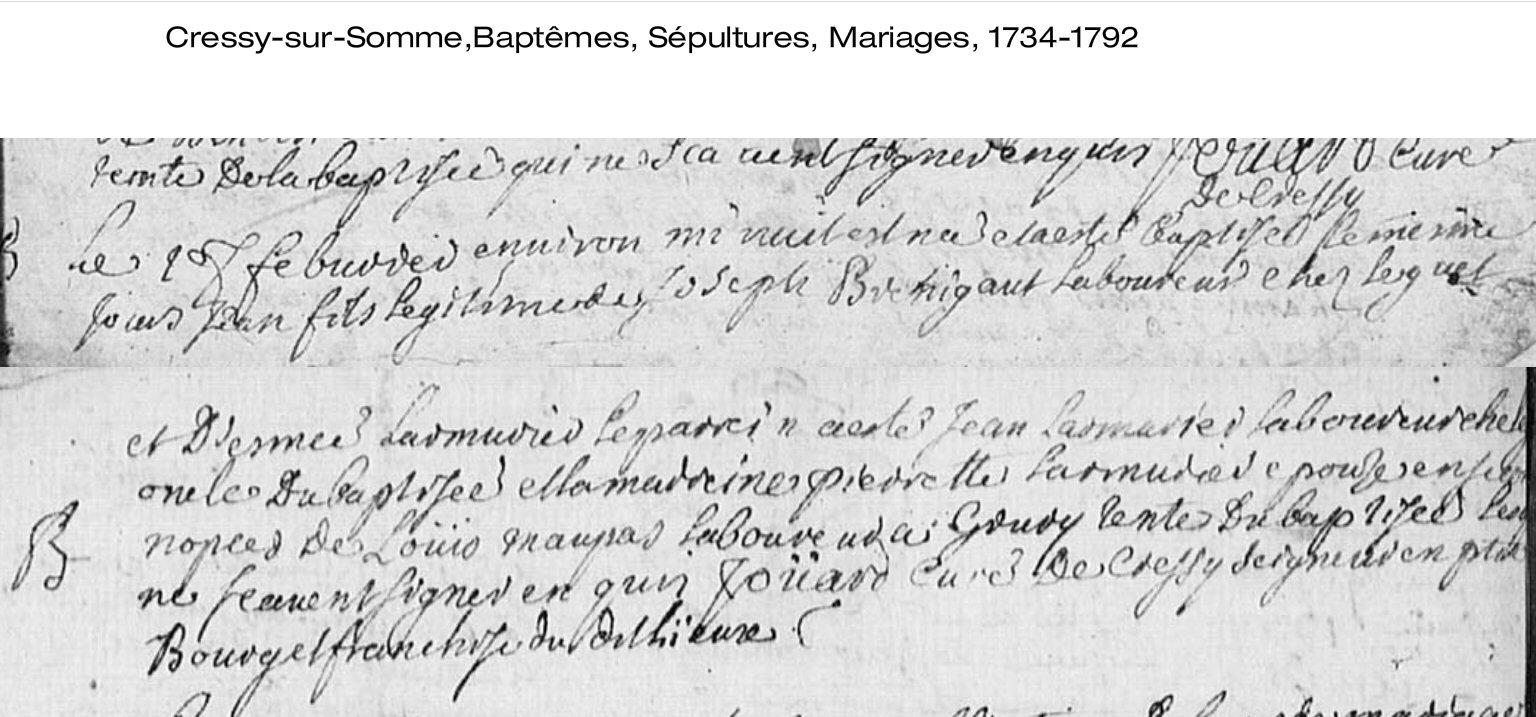 Cressy-sur-Somme,Baptêmes, Sépultures, Mariages, 1734-1792
tente De la baptisee qui ne sca uent signer enquis cure
De Cressy
Le febvrier environ mi nuit est né et a esté Baptisé le meme
jour Jean fils legitime de Joseph laboureur chez leq
et D'esmee Larmurier le parrein a esté Jean Larmurier laboureur
oncle Du baptisee et la marreine pierrette Larmurier epouse en
nopces De Loüis maupas laboureur a Grury tente Du baptisee les
ne scavent signer en quis Joüard Curé De Cressy seigneur en
Bourg et franchise du dit lieu